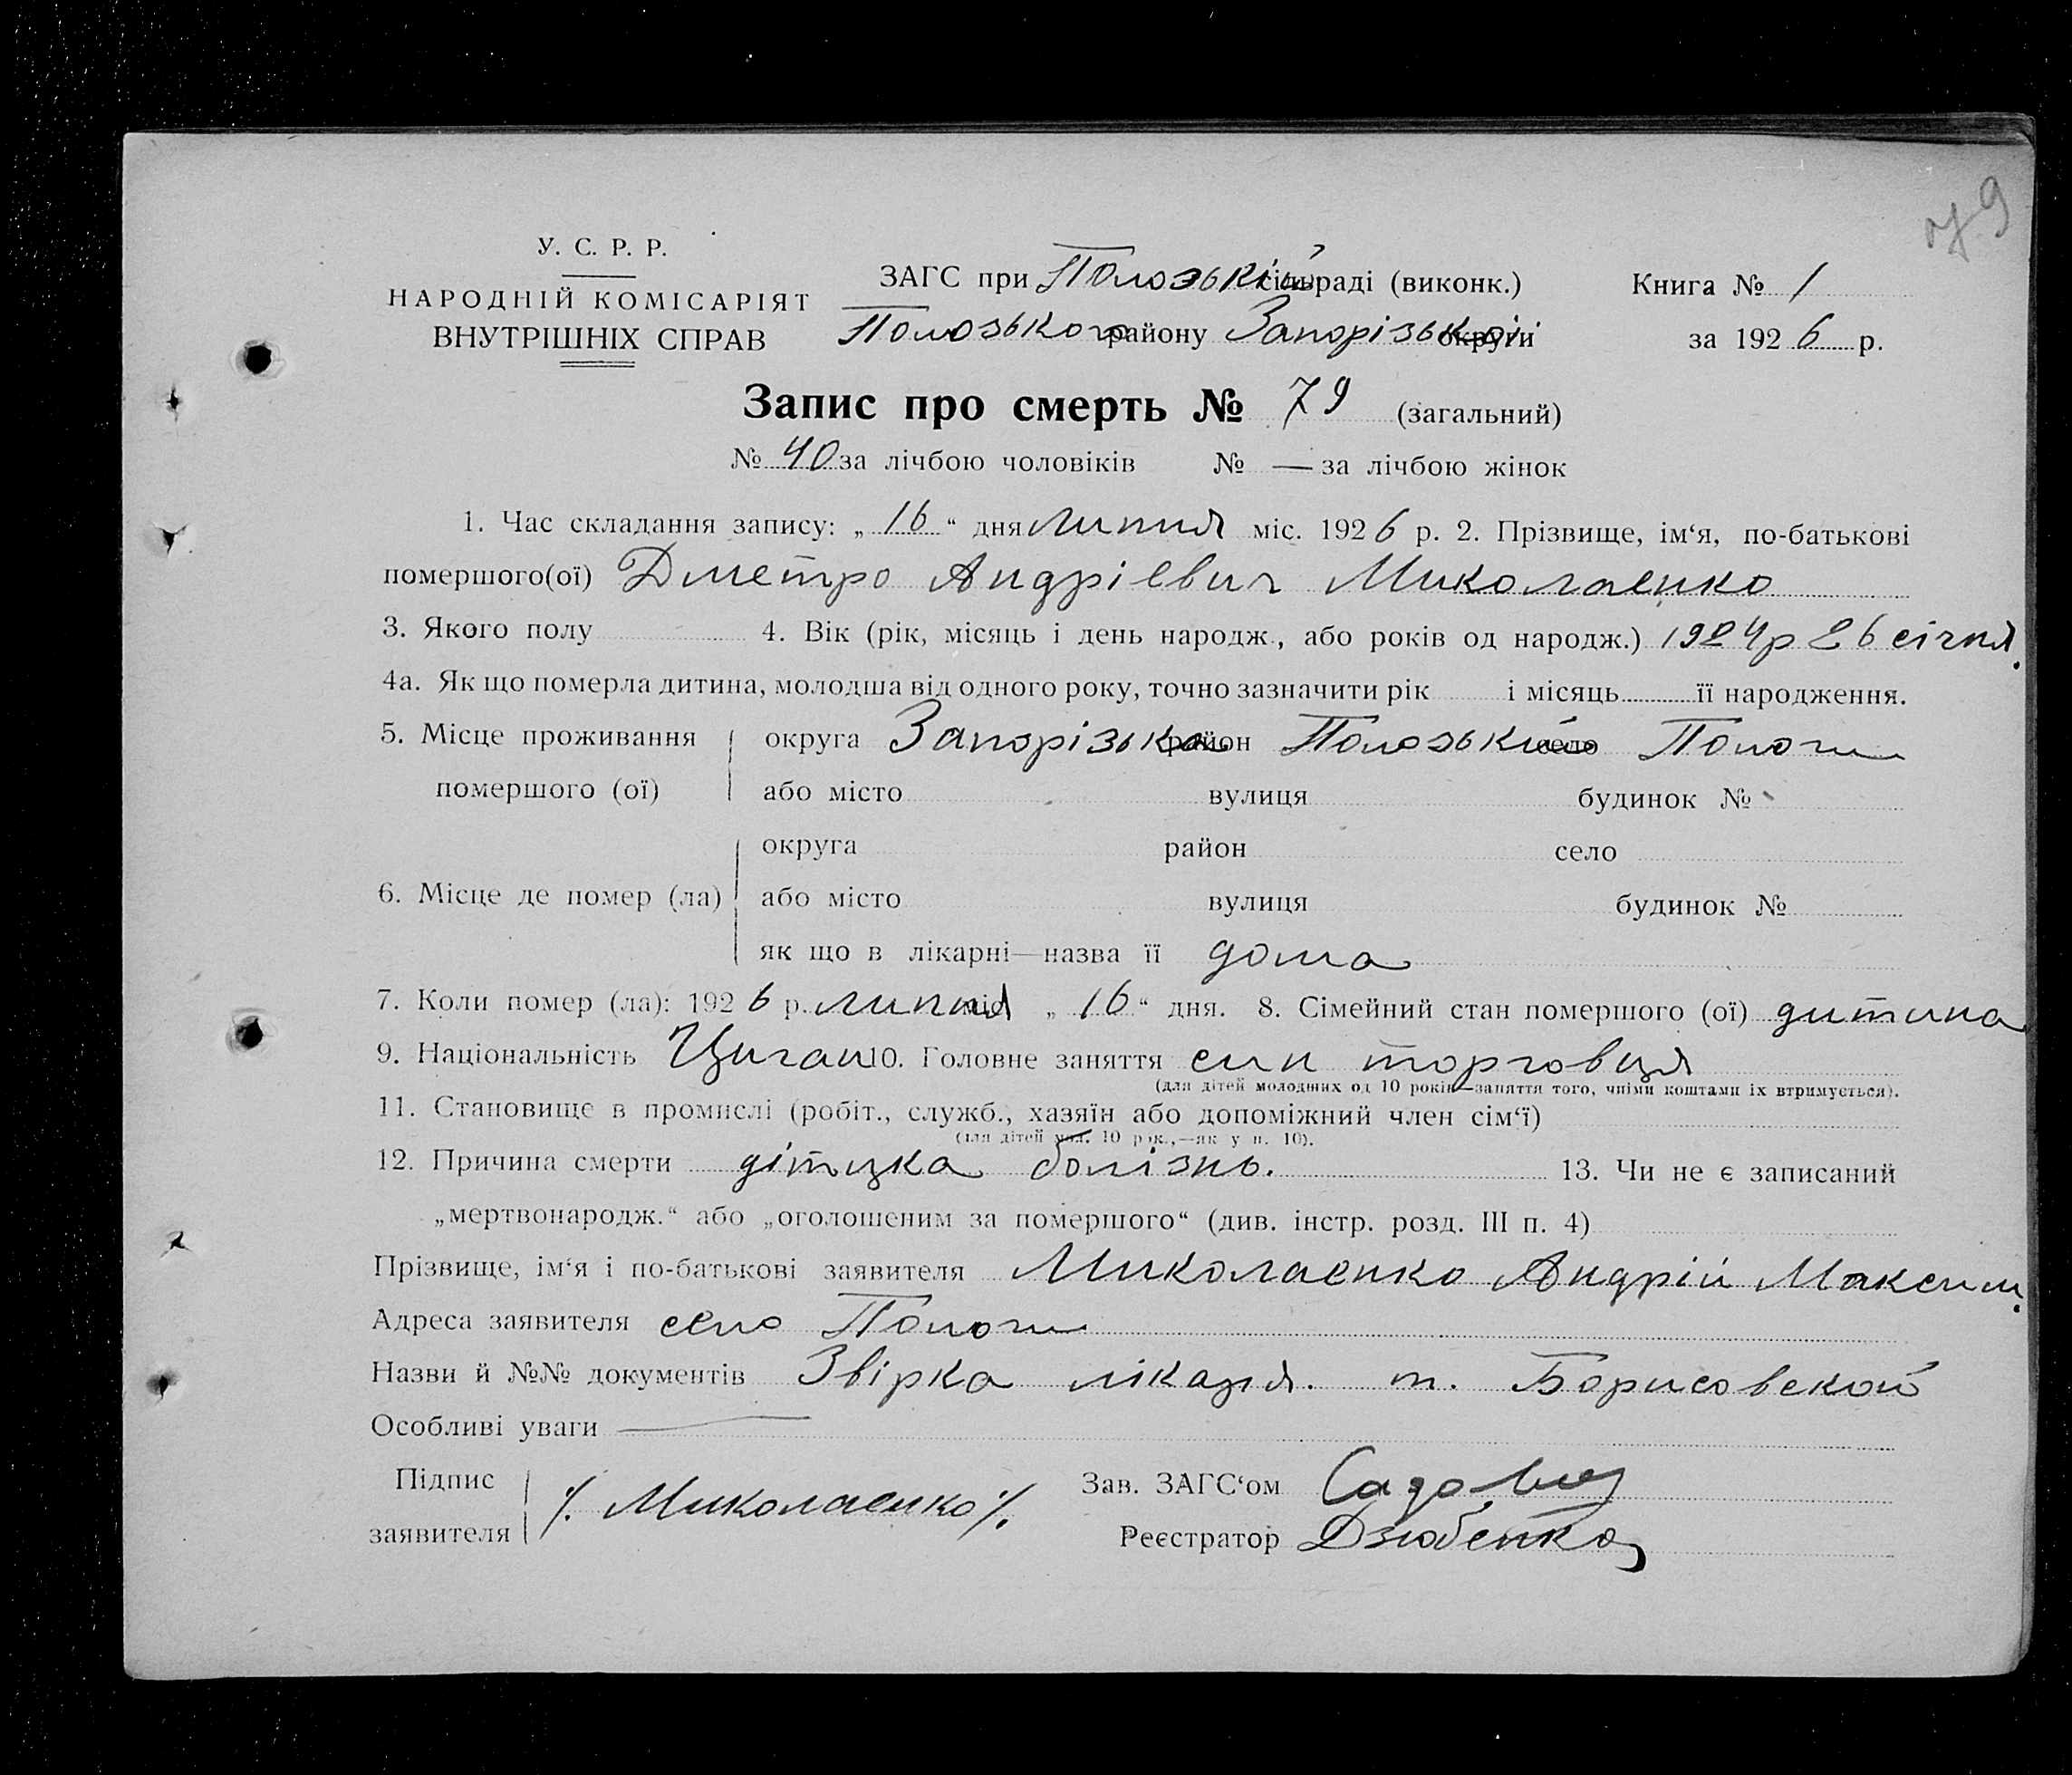 79
У. С. Р. Р.
НАРОДНІЙ КОМІСАРІЯТ
ВНУТРІШНІХ СПРАВ
ЗАГС при Полозькій сільраді (виконк.)
Полозького району Запорізької округи
Книга № 1
за 1926 р.
Запис про смерть № 79 (загальний)
№ 40 за лічбою чоловіків № — за лічбою жінок
1. Час складання запису: „ 16 “ дня липня міс. 1926 р. 2. Прізвище, ім‘я, по-батькові
помершого(ої) Дметро Андрієвич Миколаенко
3. Якого полу 4. Вік (рік, місяць і день народж., або років од народж.) 1924р 26 січня.
4а. Як що померла дитина, молодша від одного року, точно зазначити рік і місяць її народження.
5. Місце проживання помершого (ої) округа Запорізька район Полозький село Пологи
або місто вулиця будинок №
6. Місце де помер (ла) округа район село
або місто вулиця будинок №
як що в лікарні—назва її дома
7. Коли помер (ла): 1926 р. липня міс. „ 16 “ дня. 8. Сімейний стан помершого (ої) дитина
9. Національність Циган 10. Головне заняття син торговця
(для дітей молодших од 10 років—заняття того, чиїми коштами їх втримується).
11. Становище в промислі (робіт., служб., хазяїн або допоміжний член сім‘ї)
(для дітей мол. 10 рок.,—як у п. 10).
12. Причина смерти дітцка болізнь. 13. Чи не є записаний
„мертвонародж.“ або „оголошеним за помершого“ (див. інстр. розд. III п. 4)
Прізвище, ім‘я і по-батькові заявителя Миколаенко Андрій Максим.
Адреса заявителя село Пологи
Назви й №№ документів Звірка лікаря. т. Борисовской
Особливі уваги —
Підпис заявителя /. Миколаенко /.
Зав. ЗАГС‘ом
Реєстратор Дзюбенко